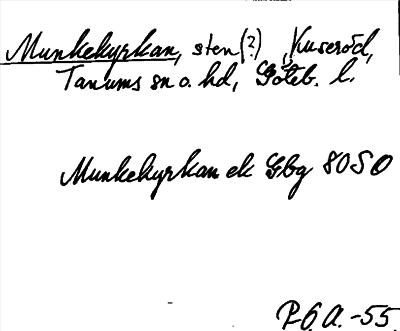 Munkekyrkan, sten(?) Kuseröd,
Tanums sn o. hd, Göteb. l.
Munkekyrkan ek Gbg 80S0
P.G.A.-55